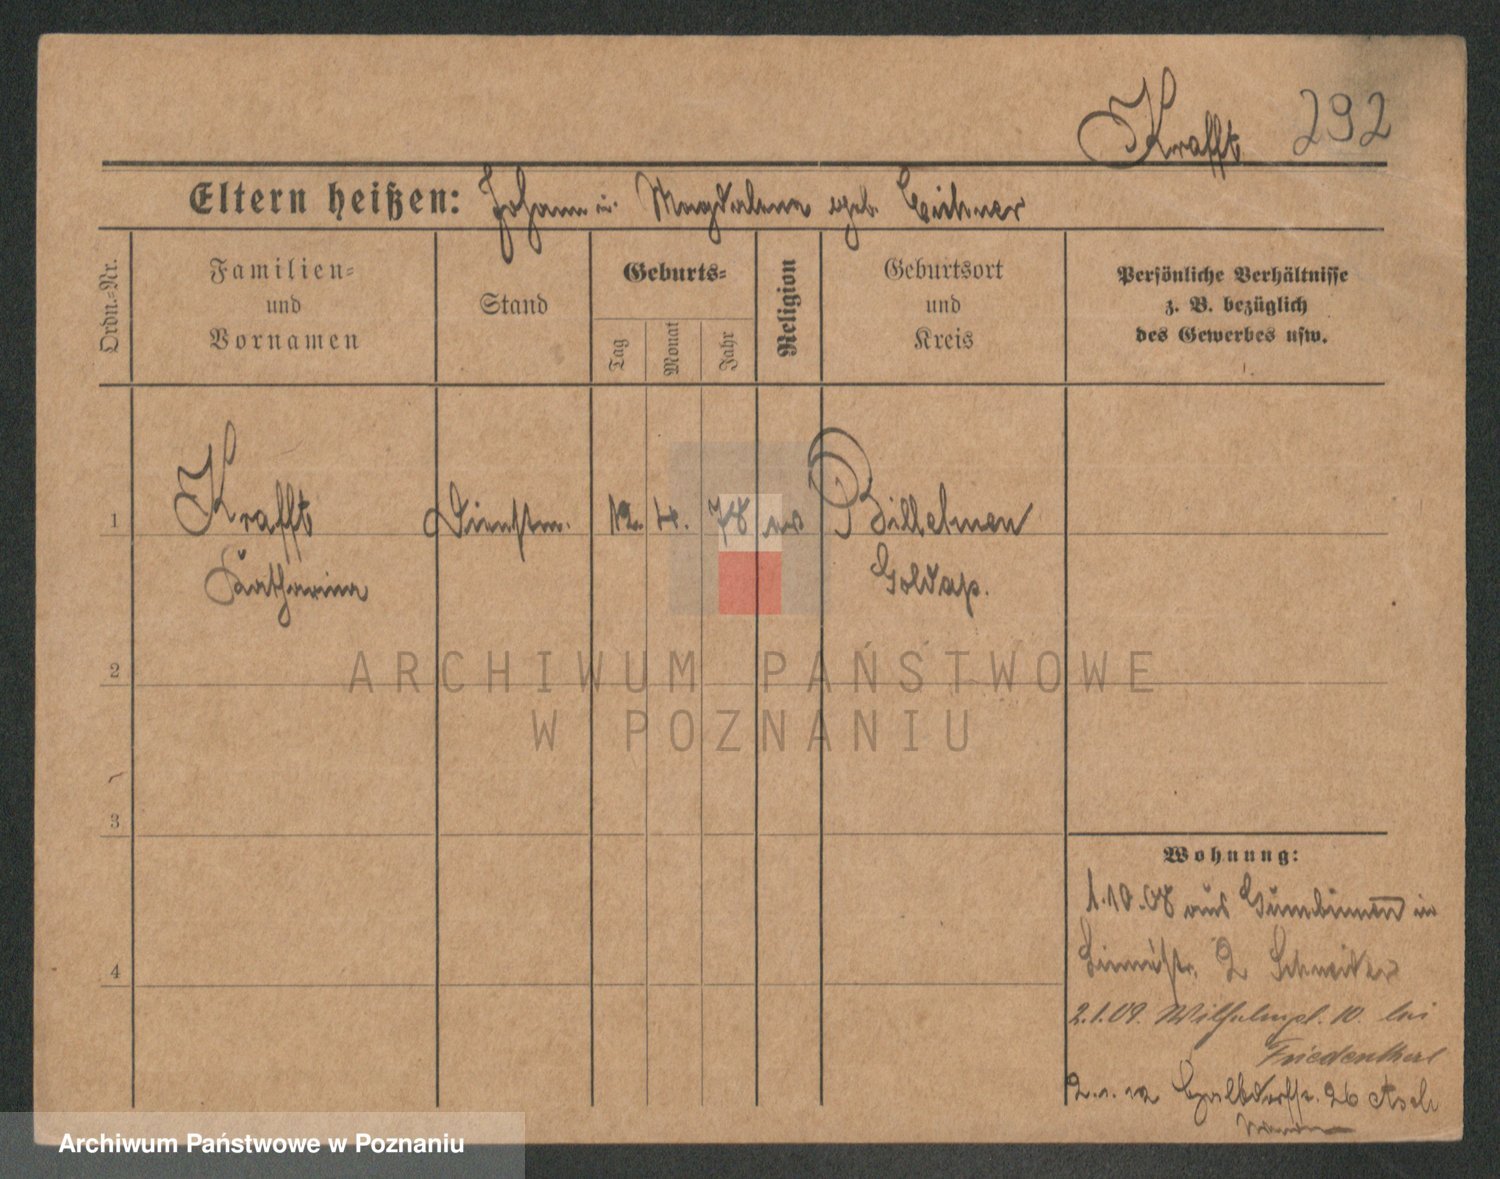 Krafft 292
Eltern heißen: Johann u. Magdalena geb.
Ordn.=Nr.
Familien=
und
Vornamen
Stand
Geburts=
Tag
Monat
Jahr
Religion
Geburtsort
und
Kreis
Persönliche Verhältnisse
z. B. bezüglich
des Gewerbes usw.
1
Krafft Dienstm. 12. 4. 78
Katharina Goldap.
2
ARCHIWUM PAŃSTWOWE
W POZNANIU
3
4
Wohnung:
1.10.08 aus Gumbinnen in
2 Schneider
2.1.09. Wilhelmpl. 10. bei
Friedenthal
26
Archiwum Państwowe w Poznaniu